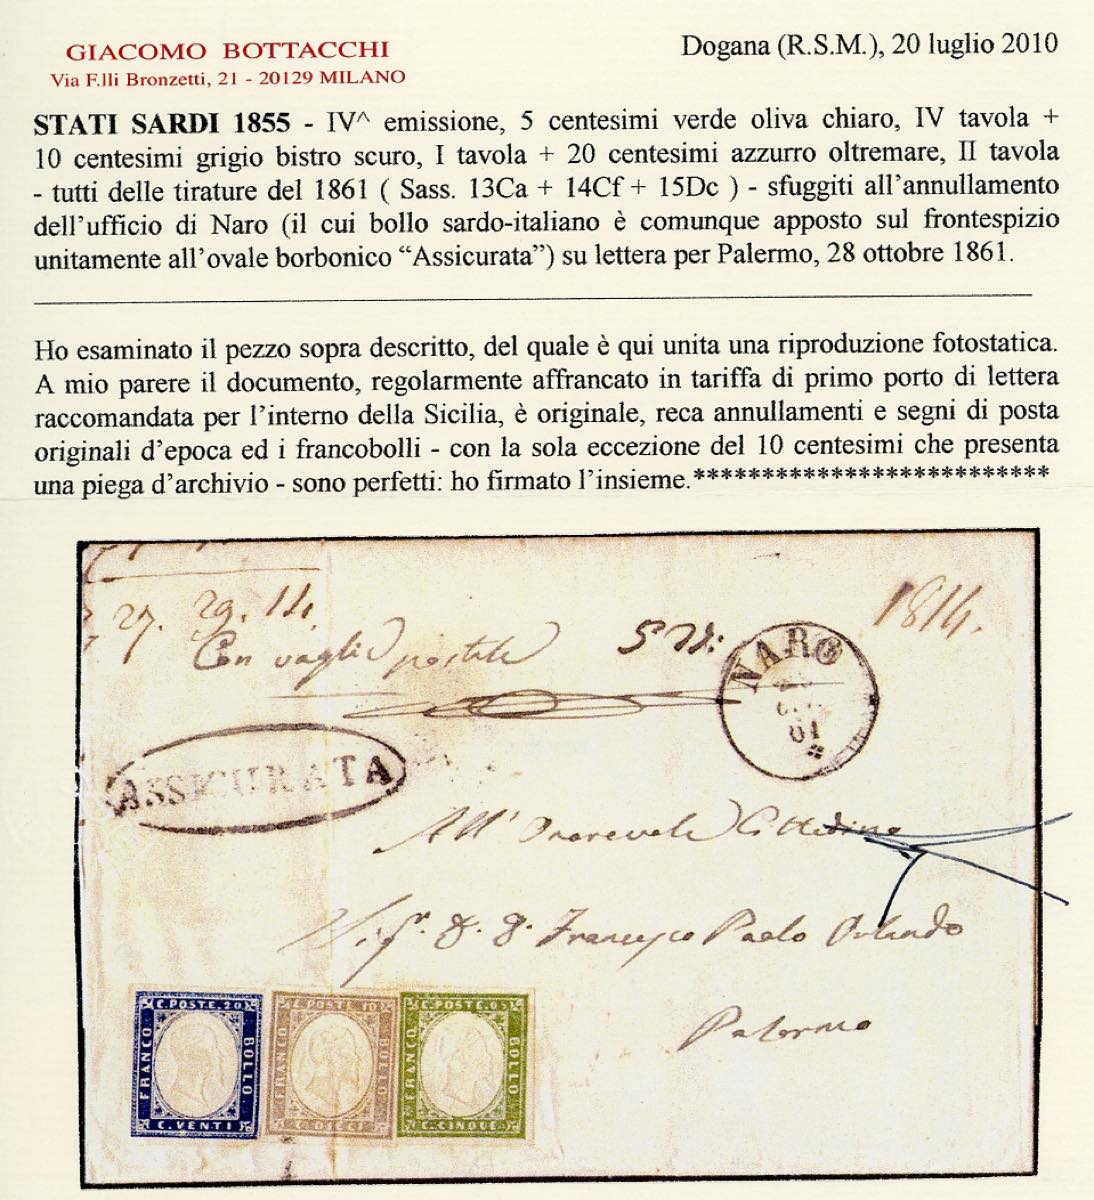 GIACOMO BOTTACCHI
Via F.lli Bronzetti, 21 - 20129 MILANO
Dogana (R.S.M.), 20 luglio 2010
STATI SARDI 1855 - IV^ emissione, 5 centesimi verde oliva chiaro, IV tavola +
10 centesimi grigio bistro scuro, I tavola + 20 centesimi azzurro oltremare, II tavola
- tutti delle tirature del 1861 ( Sass. 13Ca + 14Cf + 15Dc ) - sfuggiti all'annullamento
dell'ufficio di Naro (il cui bollo sardo-italiano è comunque apposto sul frontespizio
unitamente all'ovale borbonico “Assicurata”) su lettera per Palermo, 28 ottobre 1861.
Ho esaminato il pezzo sopra descritto, del quale è qui unita una riproduzione fotostatica.
A mio parere il documento, regolarmente affrancato in tariffa di primo porto di lettera
raccomandata per l'interno della Sicilia, è originale, reca annullamenti e segni di posta
originali d'epoca ed i francobolli - con la sola eccezione del 10 centesimi che presenta
una piega d'archivio - sono perfetti: ho firmato l'insieme.**************************
27. 29. 14.
1814.
Con vaglia postale
NARO
61
ASSICURATA
All' Onorevole Cittadino
Sigr. D. D. Francesco Paolo Orlando
Palermo
C. POSTE. 20
FRANCO
BOLLO
C. VENTI
C. POSTE. 10
FRANCO
BOLLO
C. DIECI
C. POSTE. 05
FRANCO
BOLLO
C. CINQUE